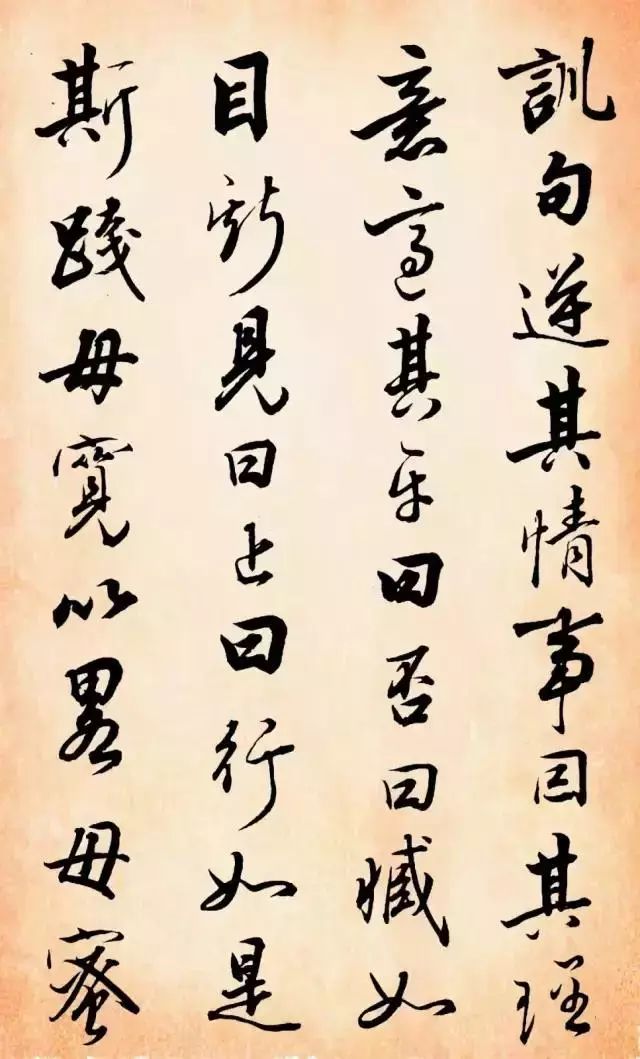 訓句逆其情事因其理
意適其平曰否曰臧如
目斯見曰止曰行如足
斯踐毋寬以畧毋密